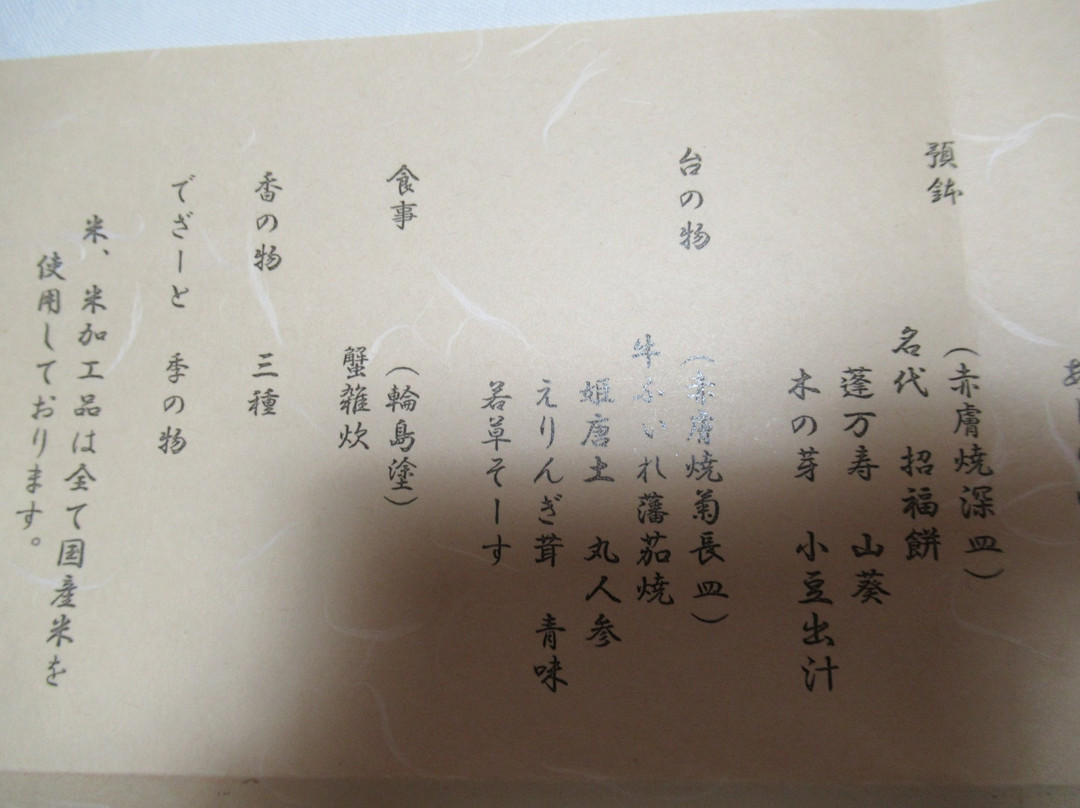 預鉢
（赤膚焼深皿）
名代　招福餅
蓬万寿　山葵
木の芽　小豆出汁
台の物
（赤膚焼菊長皿）
牛ふいれ蕃茄焼
姫唐土　丸人参
えりんぎ茸　青味
若草そーす
食事
（輪島塗）
蟹雑炊
香の物　三種
でざーと　季の物
米、米加工品は全て国産米を
使用しております。